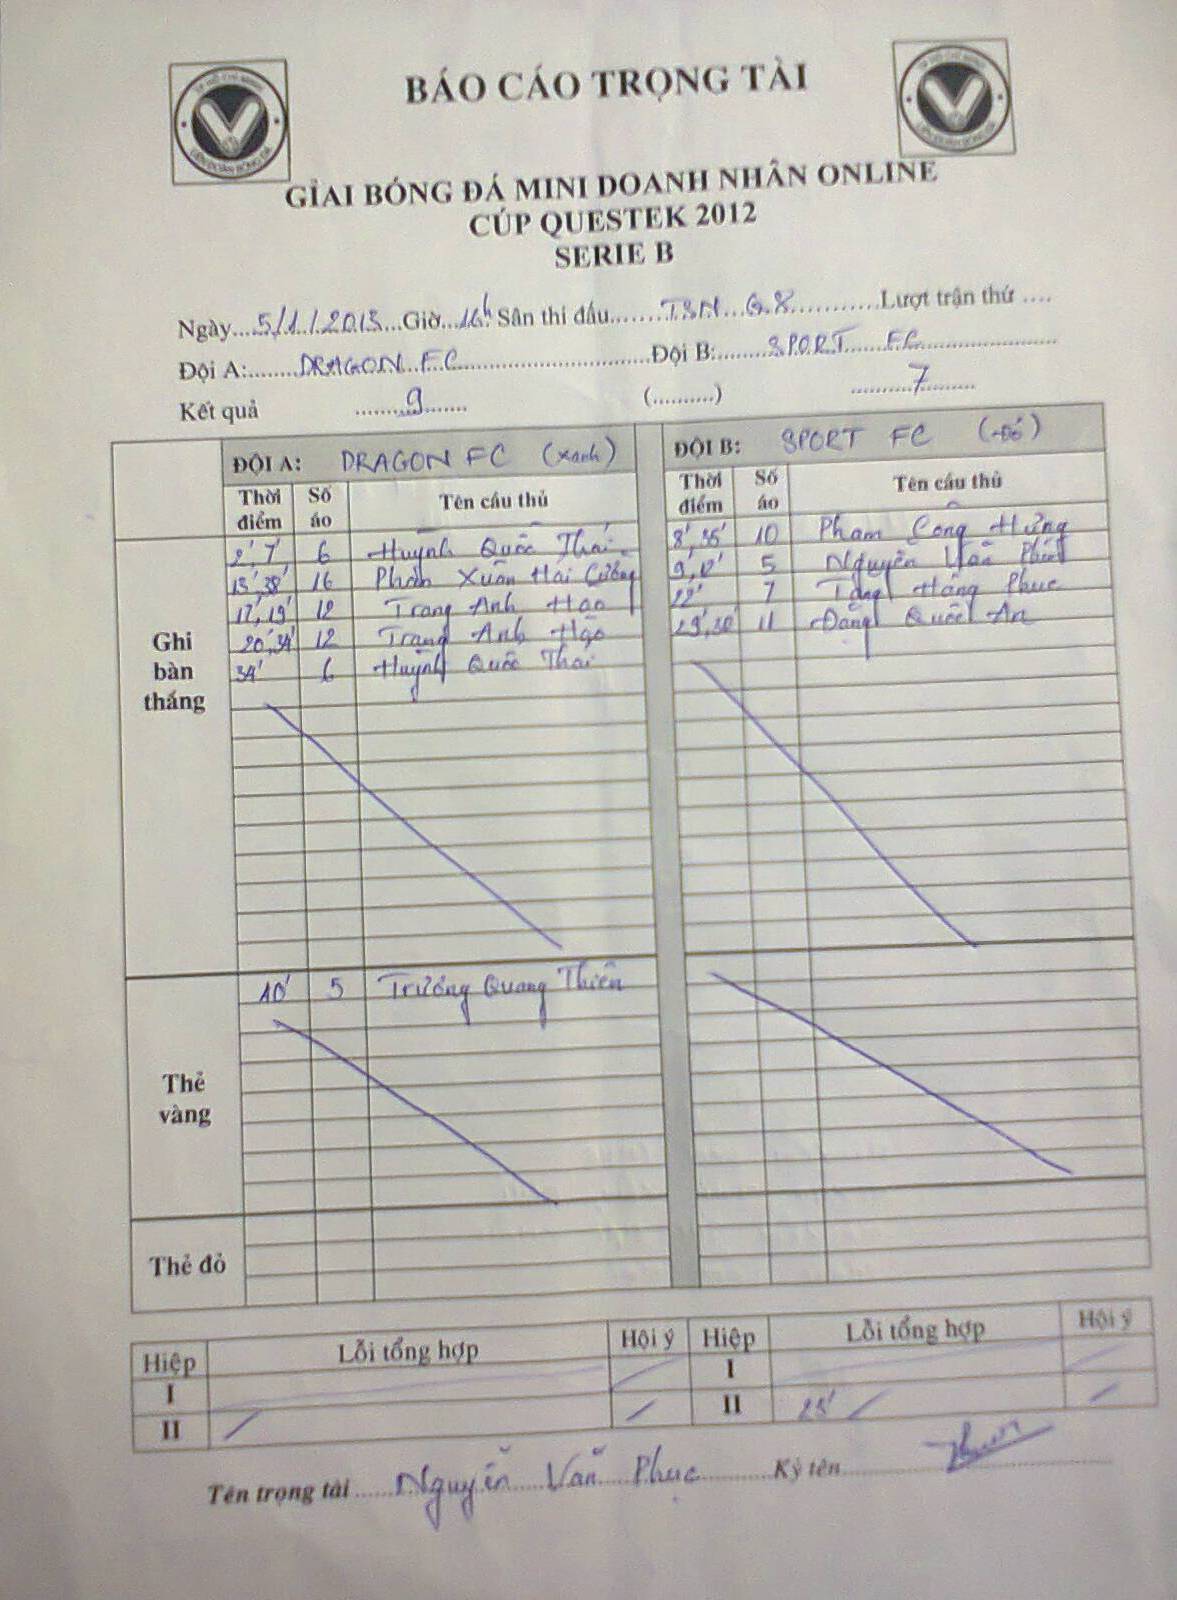 BÁO CÁO TRỌNG TÀI
TP HỒ CHÍ MINH
LIÊN ĐOÀN BÓNG ĐÁ
GIẢI BÓNG ĐÁ MINI DOANH NHÂN ONLINE
CÚP QUESTEK 2012
SERIE B
Ngày....5/1/2013...Giờ...16h Sân thi đấu.......TSN G.8...........Lượt trận thứ ....
Đội A:........DRAGON FC..............................Đội B:........SPORT FC......................
Kết quả ........9....... (..........) ..........7.........
ĐỘI A: DRAGON FC (xanh) ĐỘI B: SPORT FC (Đỏ)
Thời điểm Số áo Tên cầu thủ Thời điểm Số áo Tên cầu thủ
Ghi bàn thắng
2', 7' 6 Huỳnh Quốc Thái 8', 35' 10 Phạm Công Hưng
13', 38' 16 Phan Xuân Hải Cường 9', 12' 5 Nguyễn Văn
17', 19' 12 Trang Anh Hào 22' 7 Tăng Hồng Phúc
20', 34' 12 Trang Anh Hào 29', 30' 11 Đặng Quốc An
34' 6 Huỳnh Quốc Thái
Thẻ vàng
10' 5 Trương Quang Thiên
Thẻ đỏ
Hiệp Lỗi tổng hợp Hội ý Hiệp Lỗi tổng hợp Hội ý
I I
II II 25'
Tên trọng tài ......Nguyễn Văn Phục...........Ký tên